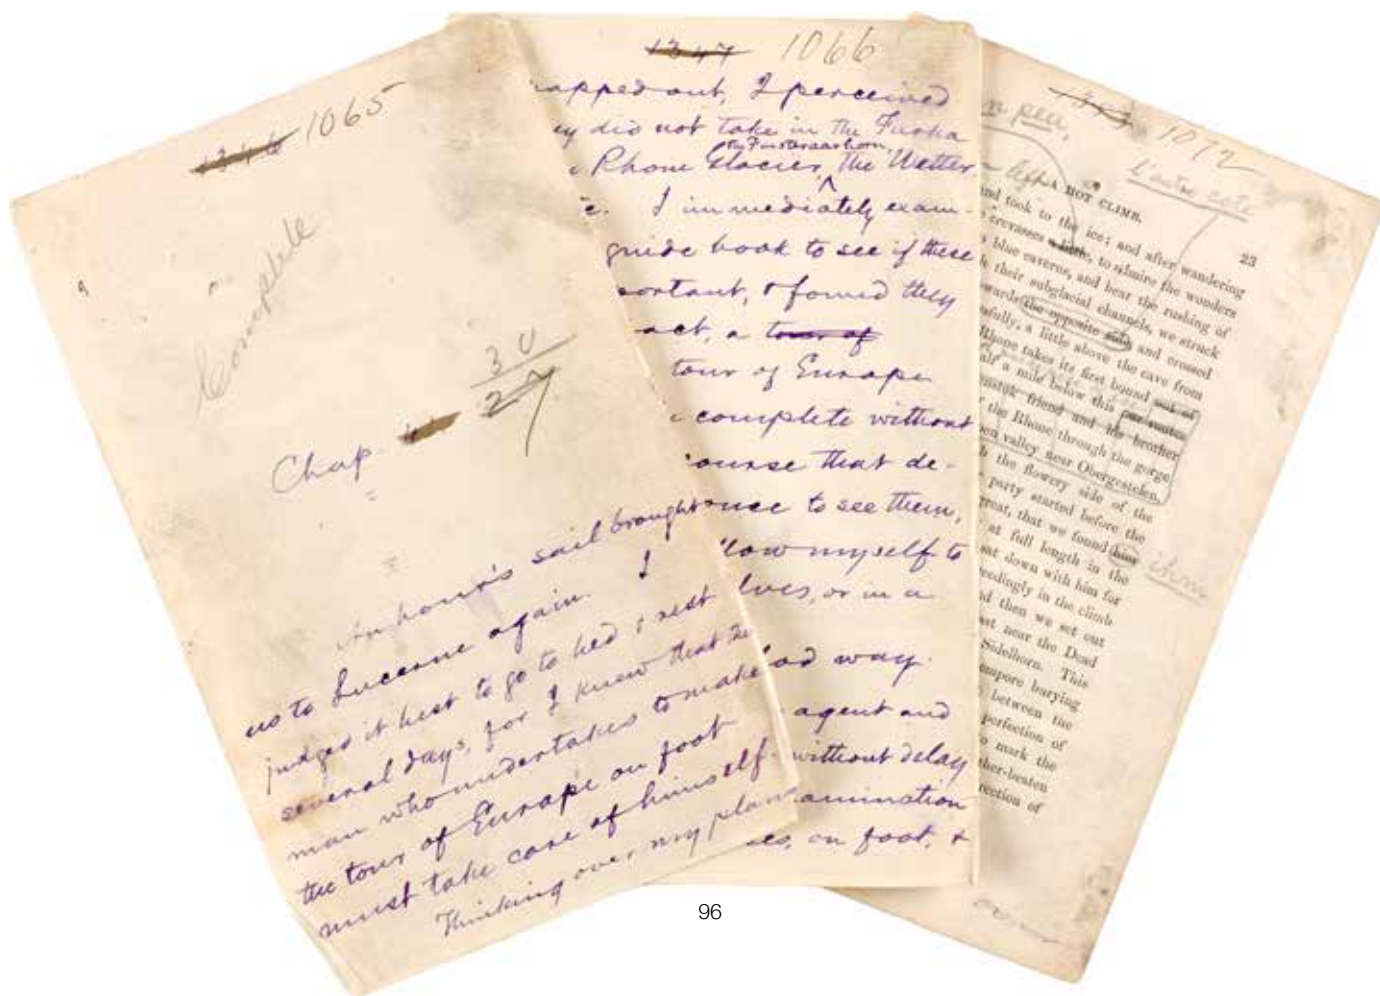 1065
Complete
Chap.
30
27
An hour's sail brought
us to Lucerne again. I
judged it best to go to bed & rest
several days, for I knew that the
man who undertakes to make
the tour of Europe on foot
must take care of himself.
Thinking over my plan
1347 1066
apped out, I perceived
ey did not take in the Furka
the Finsteraarhorn,
e Rhone Glacier, the Wetter
c. I immediately exam-
guide book to see if these
portant, & found they
act, a tour of
tour of Europe
e complete without
ourse that de-
once to see them,
llow myself to
lves, or in a
od way.
agent and
without delay
amination
es, on foot, &
n peu,
1072
l'autre coté
A HOT CLIMB.
23
nd took to the ice; and after wandering
crevasses a little, to admire the wonders
blue caverns, and hear the rushing of
their subglacial channels, we struck
wards the opposite side and crossed
sfully, a little above the cave from
Rhone takes its first bound out of
alf a mile below this our route
friend and his brother
the Rhone through the gorge
en valley near Obergestelen.
h the flowery side of the
party started before the
great, that we found him
at full length in the
sat down with him for
eedingly in the climb
d then we set out
st near the Dead
Sidelhorn. This
empore burying
between the
perfection of
o mark the
her-beaten
rection of
96